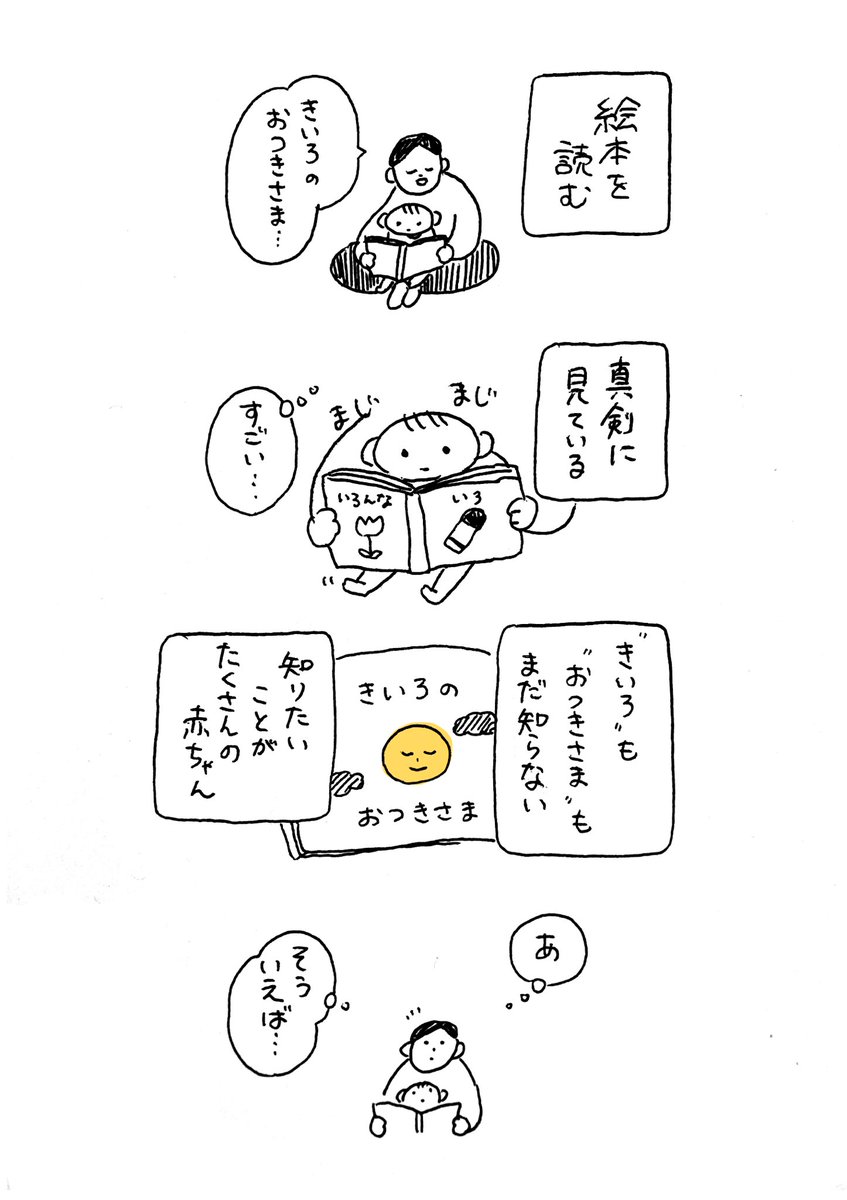 絵本を
読む
きいろの
おつきさま…
真剣に
見ている
まじ
まじ
すごい…
いろんな
いろ
"きいろ"も
"おつきさま"も
まだ知らない
きいろの
おつきさま
知りたい
ことが
たくさんの
赤ちゃん
あ
そう
いえば…